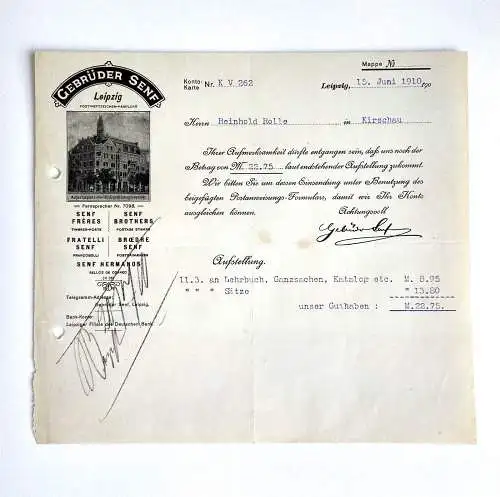 GEBRÜDER SENF
Leipzig
POSTWERTZEICHEN-HANDLUNG
Fernsprecher Nr. 7098.
SENF FRÈRES
TIMBRES-POSTE
SENF BROTHERS
POSTAGE STAMPS
FRATELLI SENF
FRANCOBOLLI
BRØDRE SENF
SENF HERMANOS
SELLOS DE CORREO
Telegramm-Adresse:
Gebrüder Senf, Leipzig.
Bank-Konto:
Leipziger Filiale der Deutschen Bank.
Mappe №
Konto-Karte Nr. K V 262
Leipzig, 15. Juni 1910
Herrn Reinhold Rolle in Kirschau
Ihrer Aufmerksamkeit dürfte entgangen sein, daß uns noch der
Betrag von M. 22.75 laut endstehender Aufstellung zukommt.
Wir bitten Sie um dessen Einsendung unter Benutzung des
beigefügten Postanweisungs-Formulars, damit wir Ihr Konto
ausgleichen können.
Achtungsvoll
Gebrüder Senf
Aufstellung.
11.3. an Lehrbuch, Ganzsachen, Katalog etc. M. 8.95
" " " Sätze " 13.80
unser Guthaben : M. 22.75.